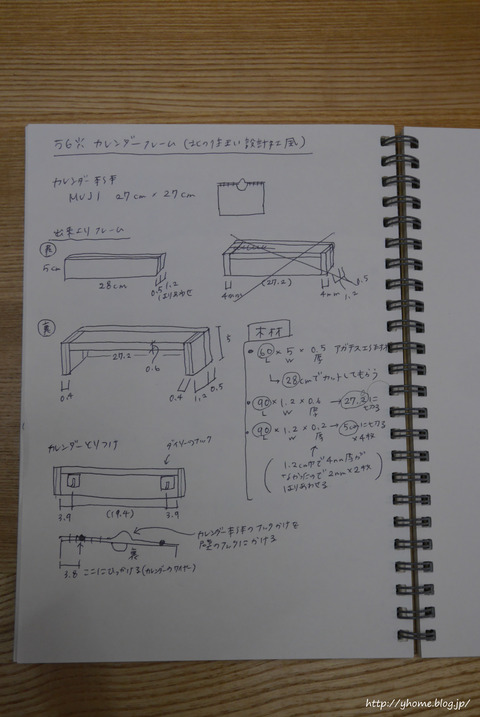 カレンダーフレーム (北のすまい設計社風)
カレンダー本体
MUJI 27cm × 27cm
出来上りフレーム
表
5cm
28cm
0.5
1.2
はりあわせ
4mm
(27.2)
4mm
1.2
0.5
裏
27.2
0.6
5
0.4
0.4
1.2
0.5
木材
60 × 5 × 0.5 アガチス工作材
L W 厚
→ 28cmでカットしてもらう
90 × 1.2 × 0.4 → 27.2に切る
L W 厚
90 × 1.2 × 0.2 → 5cmに切る × 4枚
L W 厚
(1.2cm巾で4mm厚が
なかったので2mm×2枚
はりあわせる)
カレンダーとりつけ
ダイソーのフック
3.9
(19.4)
3.9
カレンダー本体のフックかけを
壁のフックにかける
裏
3.8
ここにひっかける(カレンダーのワイヤー)
http://yhome.blog.jp/